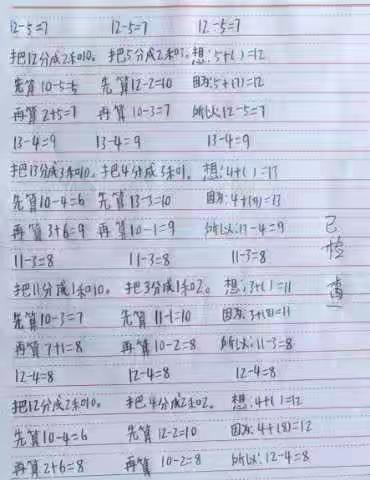 12-5=7 12-5=7 12-5=7
把12分成2和10。 把5分成2和3。 想:5+( )=12
先算10-5=5 先算12-2=10 因为:5+(7)=12
再算2+5=7 再算10-3=7 所以:12-5=7
13-4=9 13-4=9 13-4=9
把13分成3和10。 把4分成3和1。 想:4+( )=13
先算10-4=6 先算13-3=10 因为:4+(9)=13
再算3+6=9 再算10-1=9 所以:13-4=9
已检查
11-3=8 11-3=8 11-3=8
把11分成1和10。 把3分成1和2。 想:3+( )=11
先算10-3=7 先算11-1=10 因为:3+(8)=11
再算7+1=8 再算10-2=8 所以:11-3=8
12-4=8 12-4=8 12-4=8
把12分成2和10。 把4分成2和2。 想:4+( )=12
先算10-4=6 先算12-2=10 因为:4+(8)=12
再算2+6=8 再算10-2=8 所以:12-4=8